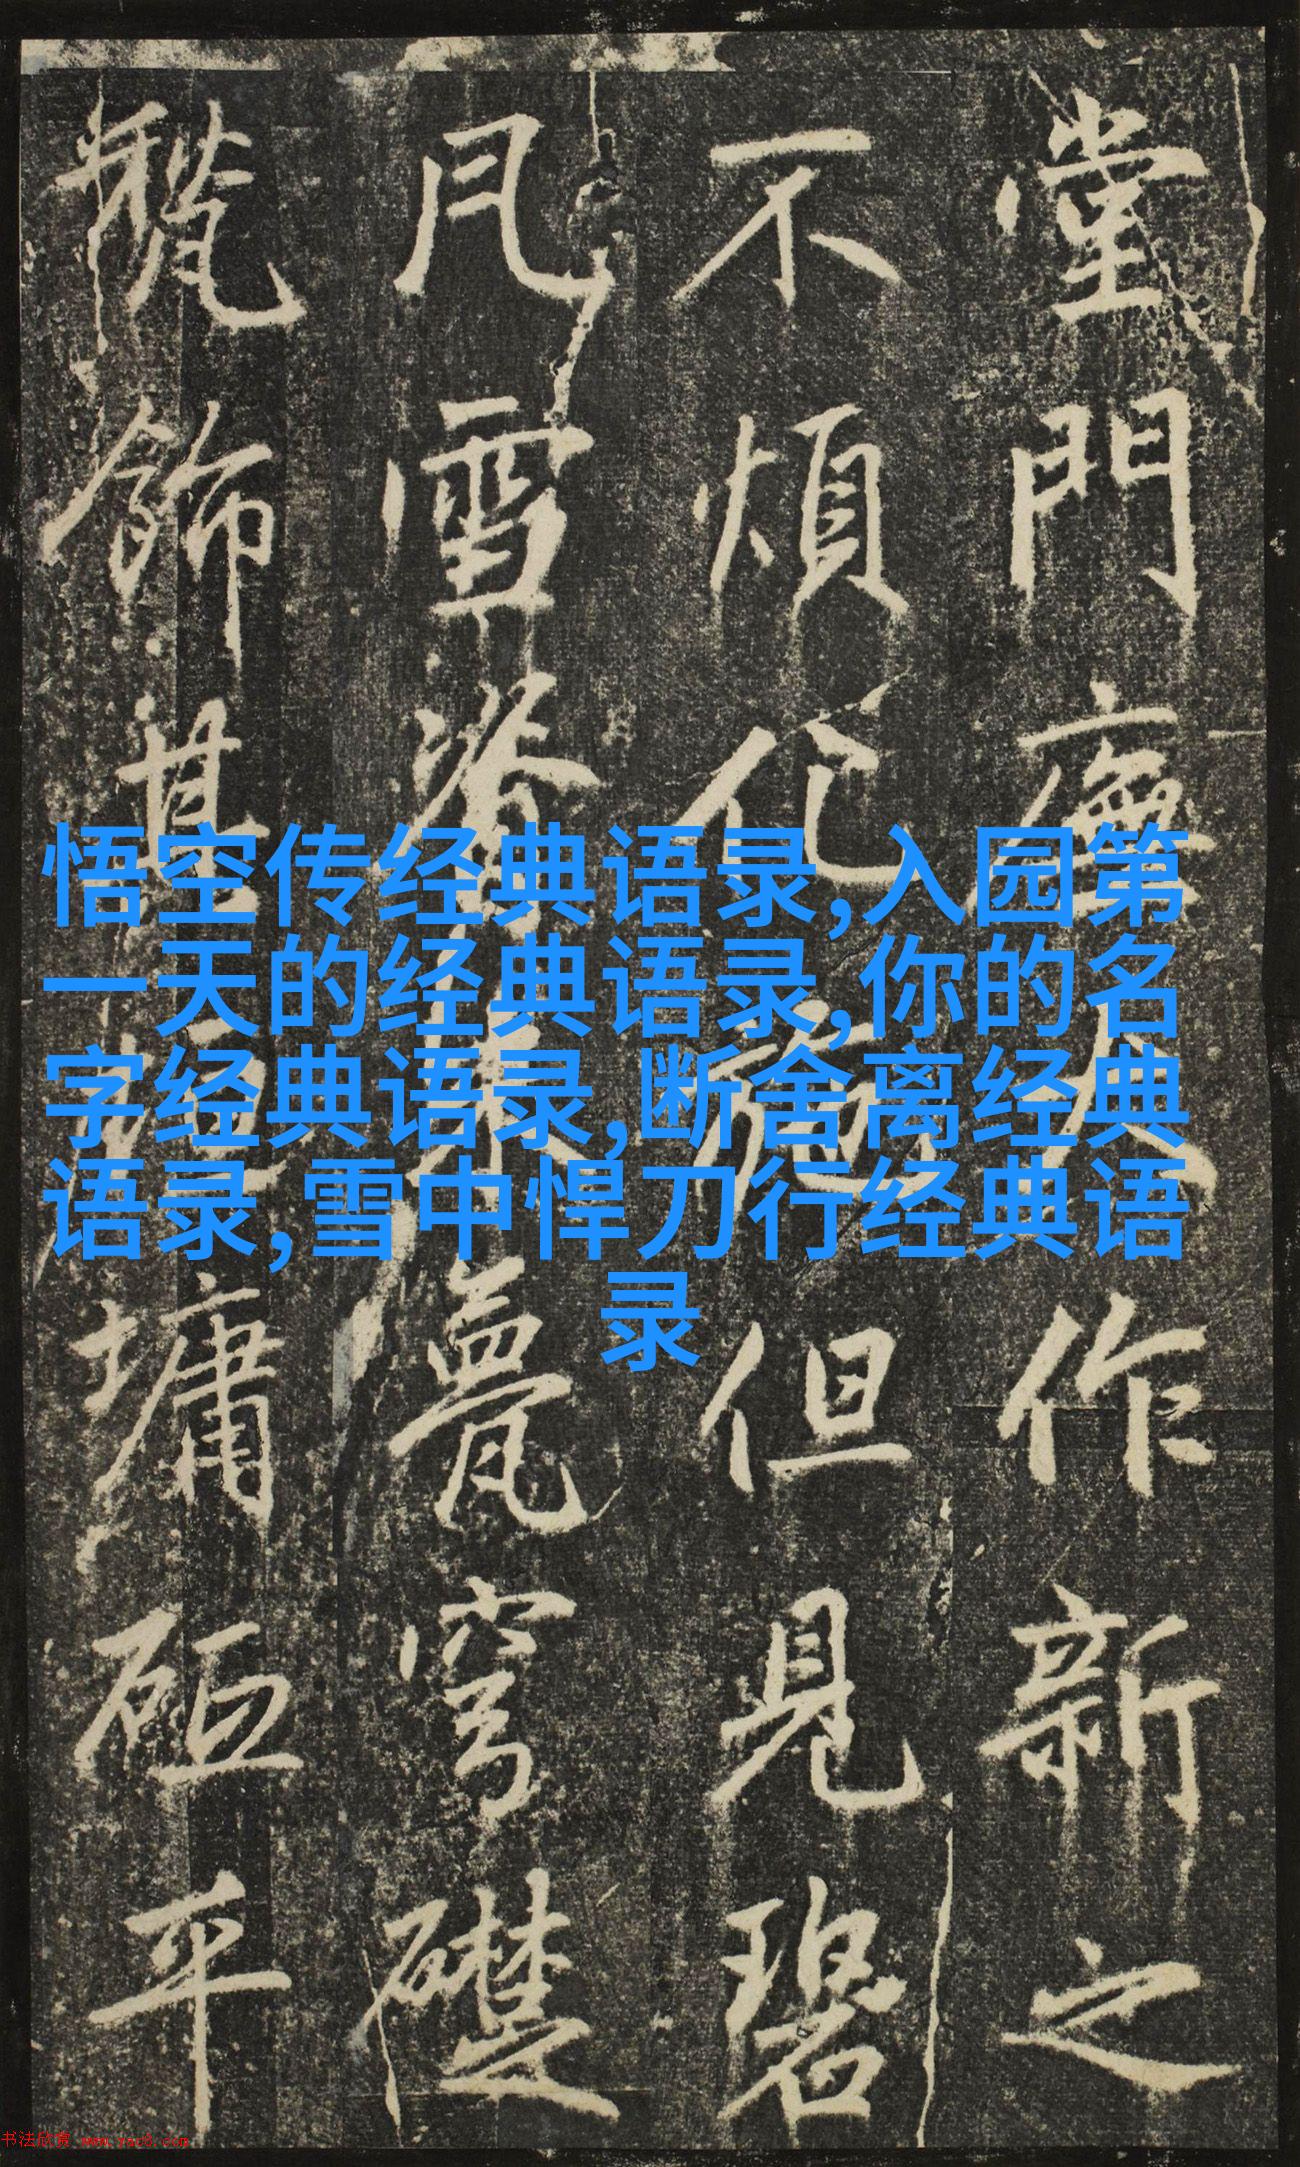 堂門廡作新之
不煩化施但見碧
雪甍穹礎
飾其墉砥平
悟空传经典语录,入园第
一天的经典语录,你的名
字经典语录,断舍离经典
语录,雪中悍刀行经典语
录
书法欣赏 www.yac8.com